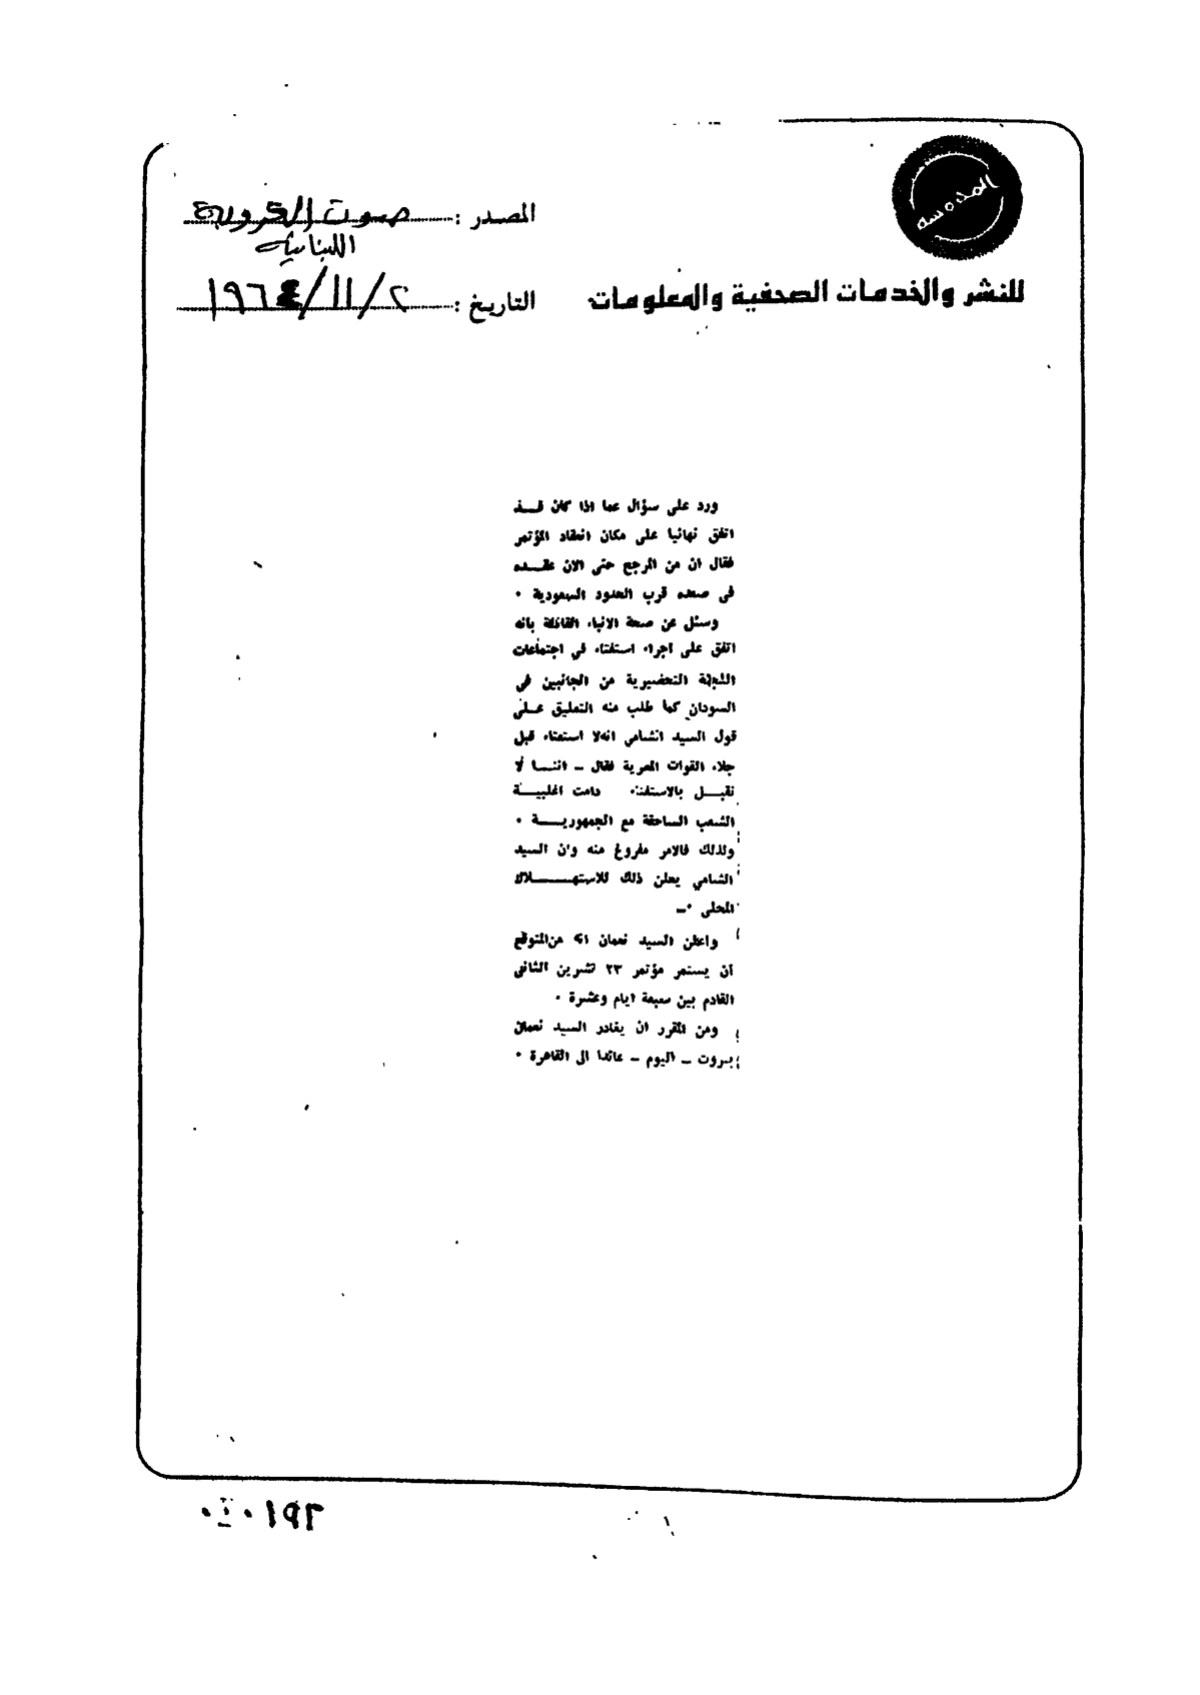 المدوسه
للنشر والخدمات الصحفية والمعلومات
المصدر : صوت العروبة
اللبنانية
التاريخ : ٢/١١/١٩٦٤
ورد على سؤال عما اذا كان قــد
اتفق نهائيا على مكان انعقاد المؤتمر
فقال ان من المرجح حتى الان عقــده
في صعده قرب الحدود السعودية ٠
وسئل عن صحة الانباء القائلة بانه
اتفق على اجراء استفتاء في اجتماعات
اللجنة التحضيرية من الجانبين في
السودان كما طلب منه التعليق علــى
قول السيد الشامي انه لا استفتاء قبل
جلاء القوات المصرية فقال ــ اننــا لا
نقبــل بالاستفتاء دامت اغلبيــة
الشعب الساحقة مع الجمهوريــة ٠
ولذلك فالامر مفروغ منه وان السيد
الشامي يعلن ذلك للاستهــــلاك
المحلى ٠ــ
واعلن السيد نعمان انه من المتوقع
ان يستمر مؤتمر ٢٣ تشرين الثانى
القادم بين سبعة ايام وعشرة ٠
ومن المقرر ان يغادر السيد نعمان
بيروت ــ اليوم ــ عائدا الى القاهرة ٠